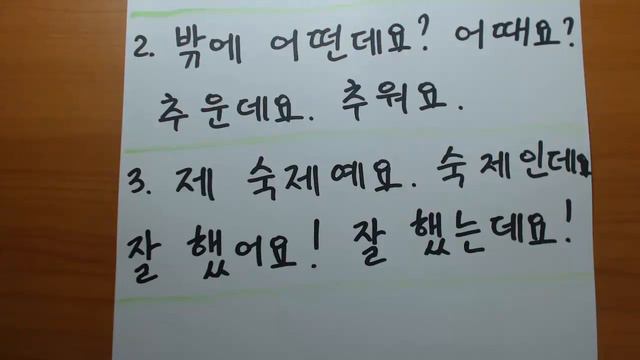 2. 밖에 어떤데요? 어때요?
추운데요. 추워요.
3. 제 숙제예요. 숙제인데요
잘 했어요! 잘 했는데요!